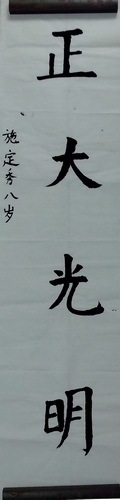 正大光明
施定秀八岁